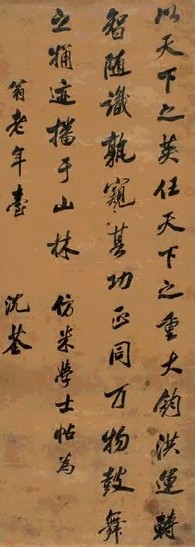 以天下之英任天下之重大钧洪運轉
智随識孰窺其功正同万物鼓舞
之獨迹播于山林 仿米學士帖為
翁老年臺 沈荃